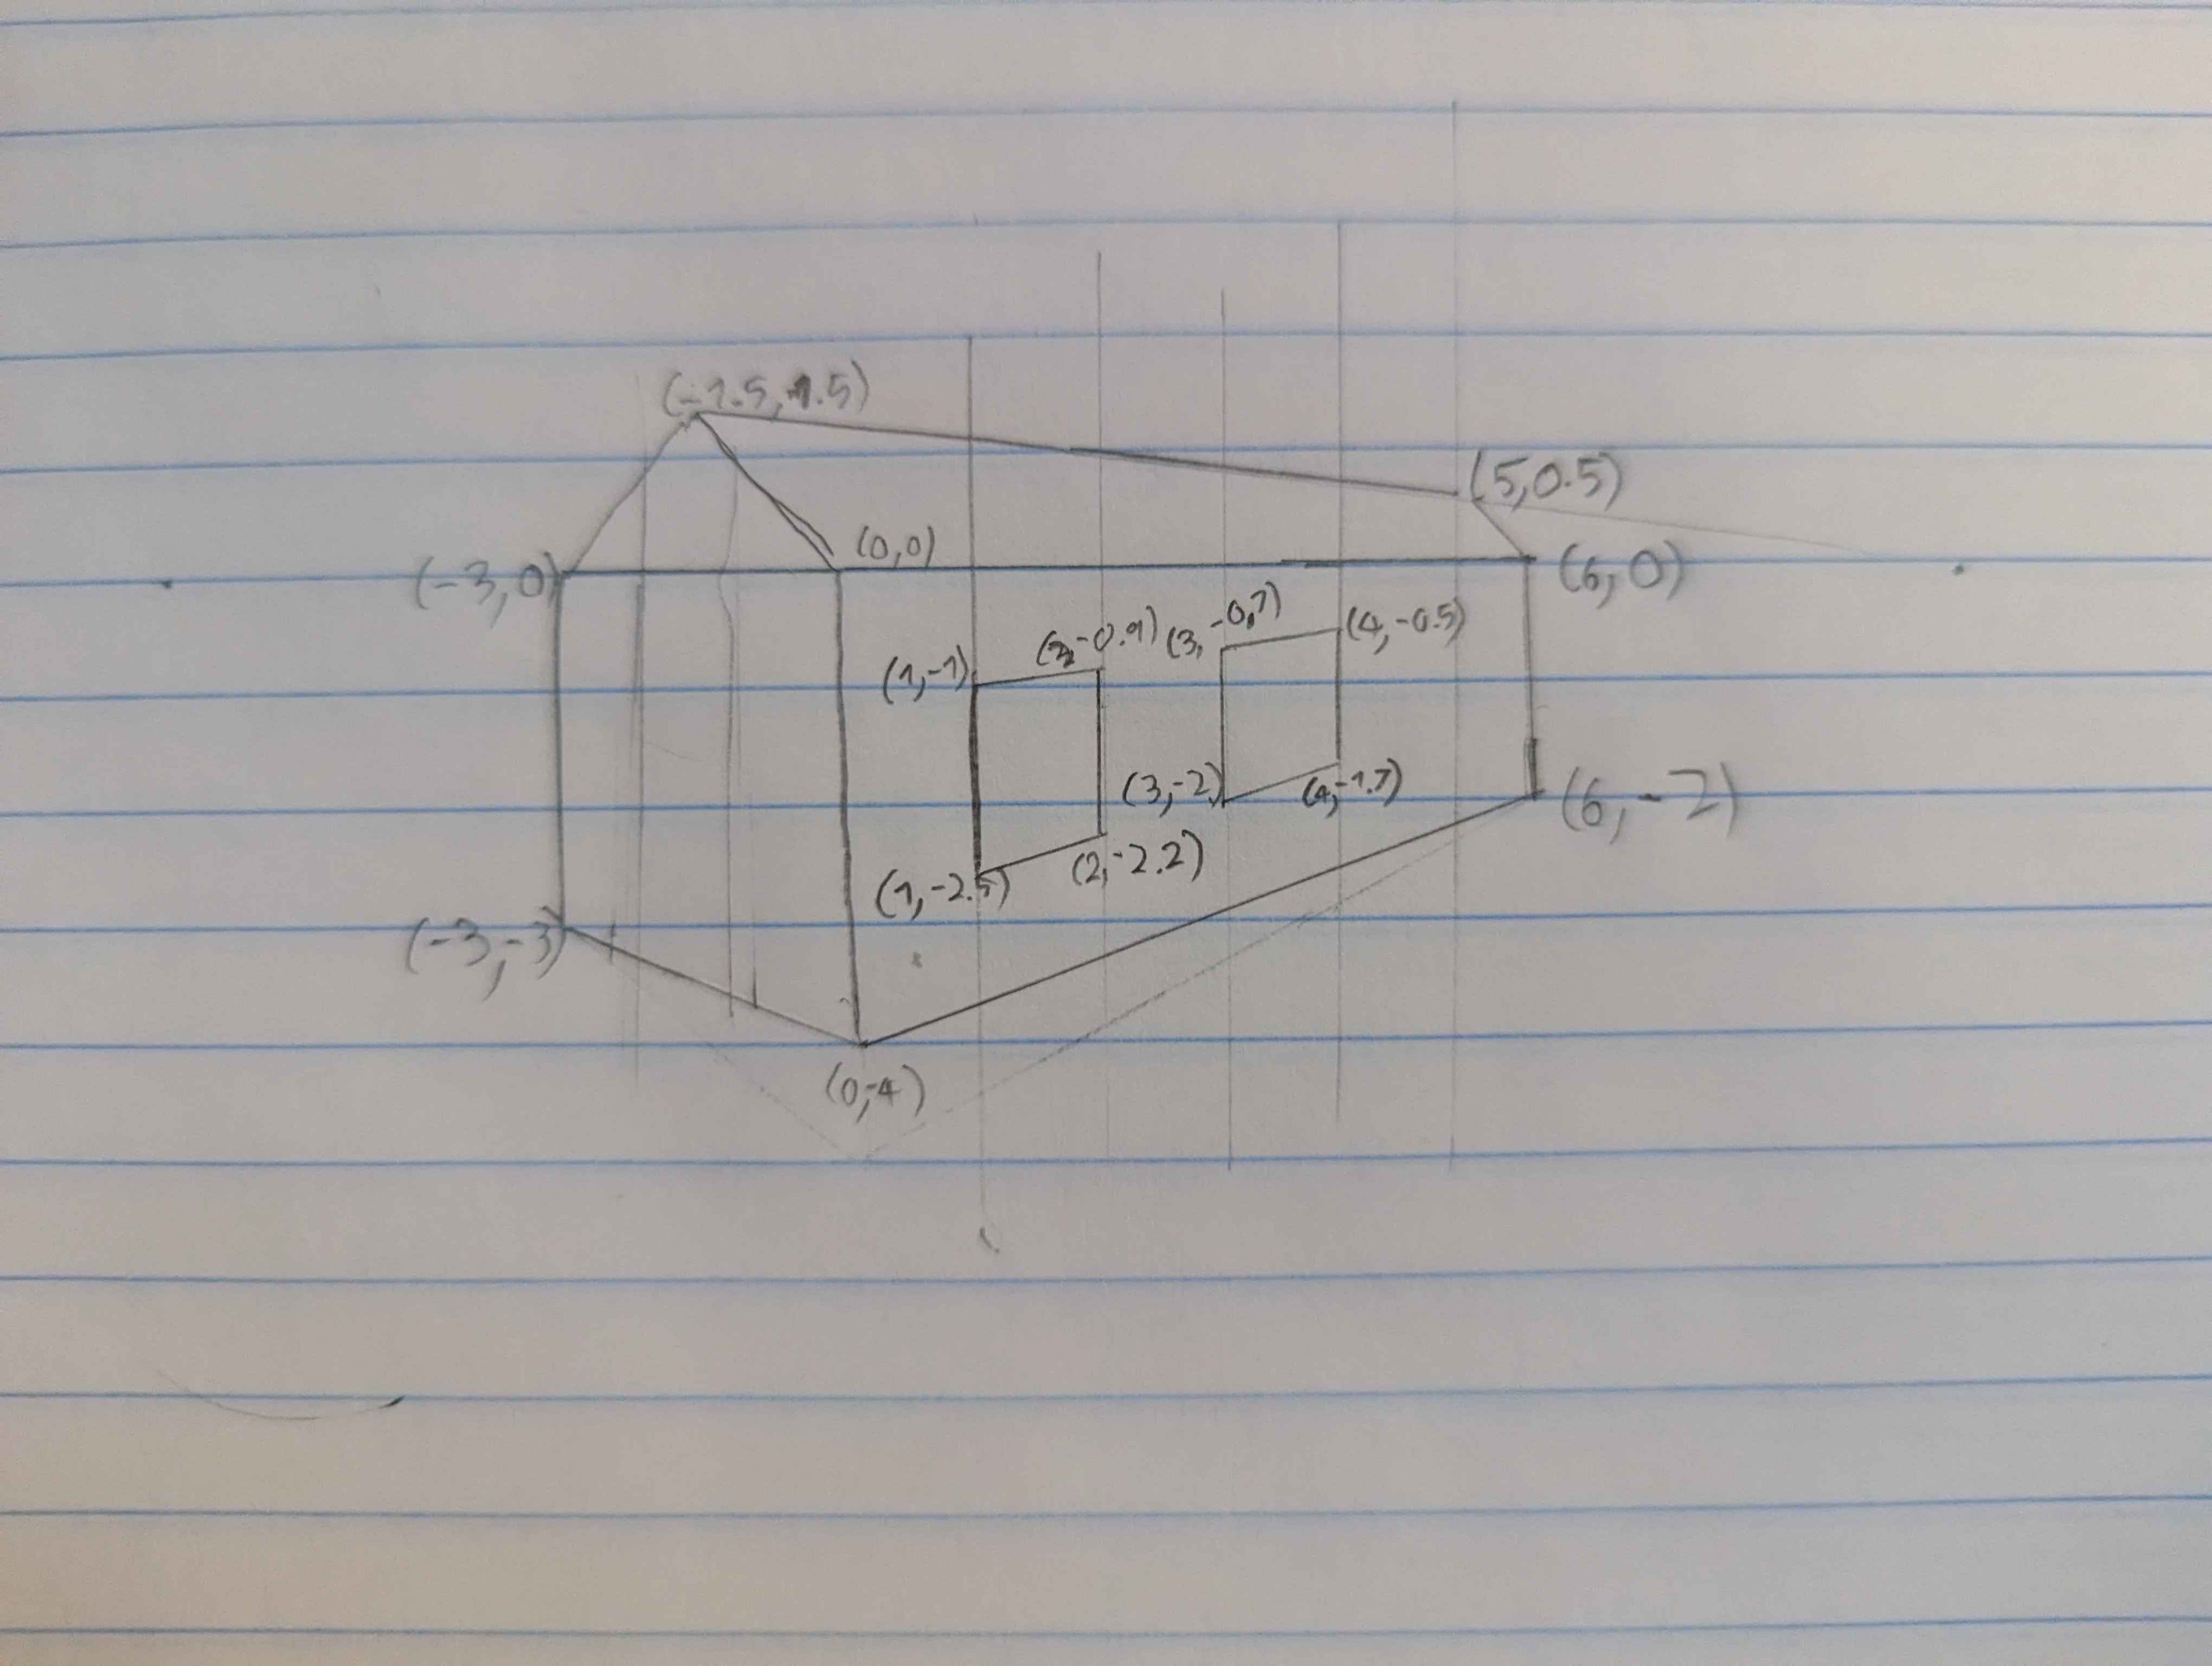 (-1.5, 1.5)
(5, 0.5)
(0,0)
(-3, 0)
(6, 0)
(1,-1)
(2,-0.9)
(3,-0.7)
(4,-0.5)
(3,-2)
(4,-1.7)
(6,-2)
(1,-2.5)
(2,-2.2)
(-3,-3)
(0,-4)